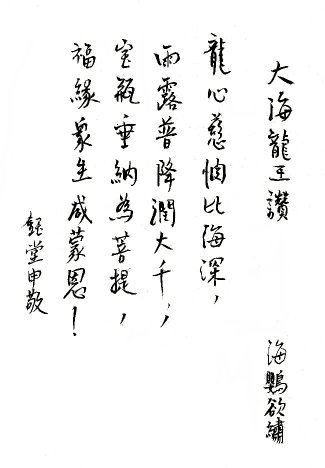 大海龍王讚
海鷗欲繡
龍心慈憫比海深，
雨露普降潤大千，
宝瓶垂納為菩提，
福緣眾生咸蒙恩！
鈺堂申敬